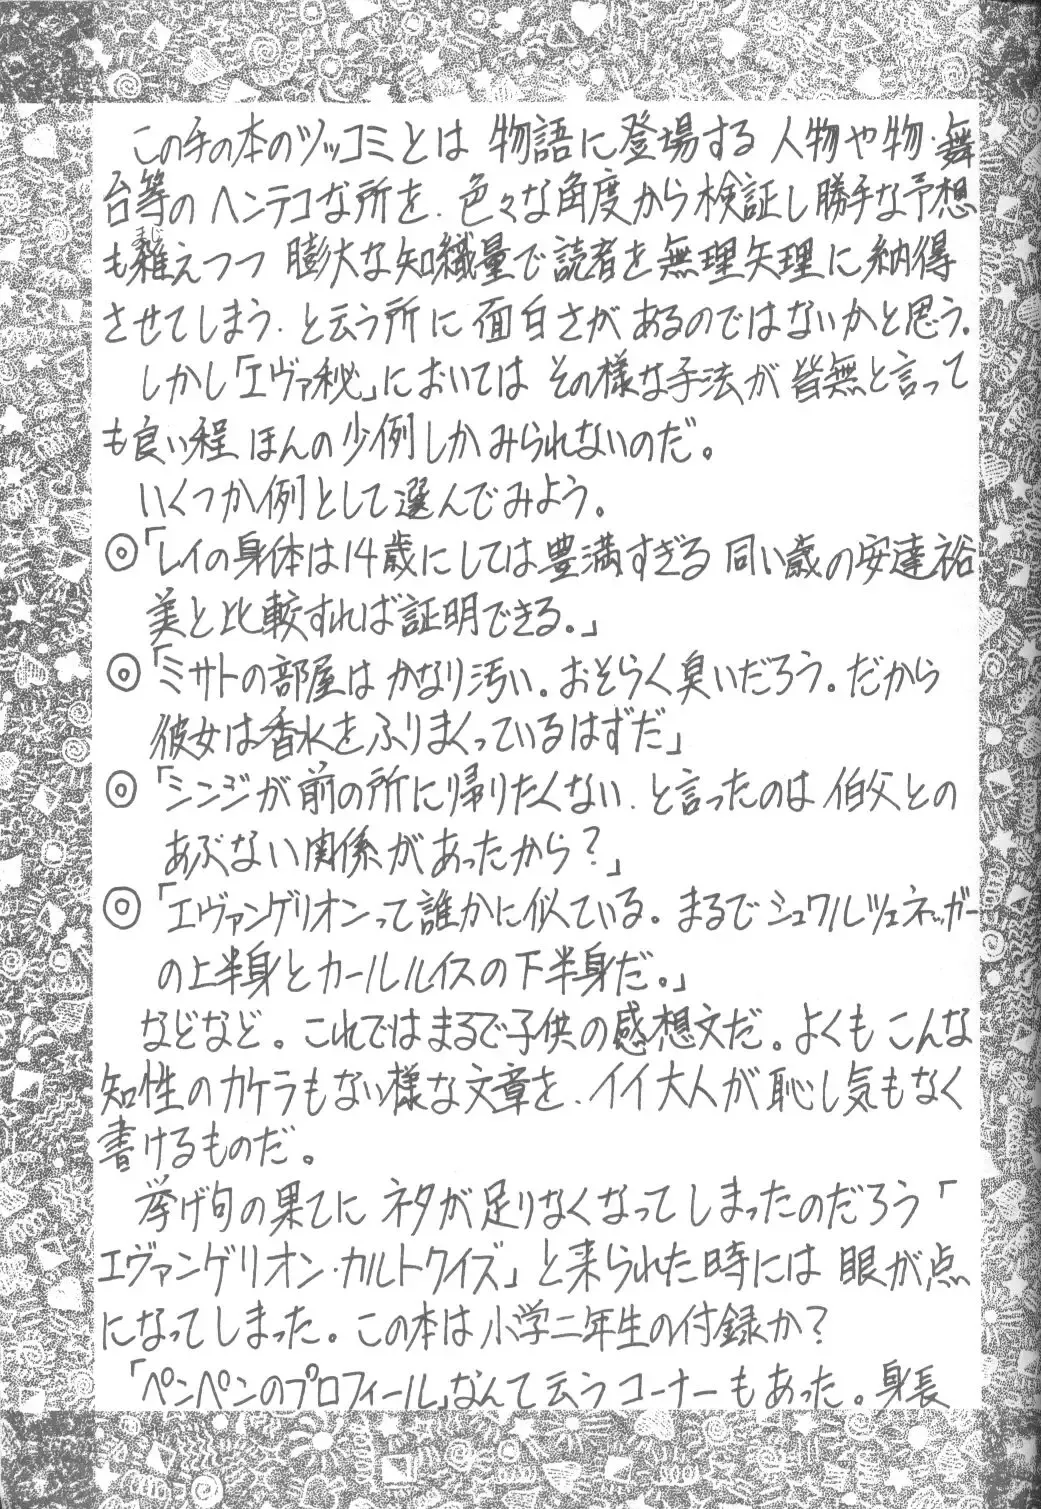 この手の本のツッコミとは 物語に登場する 人物や物・舞
台等の ヘンテコな所を、色々な角度から検証し勝手な予想
も雑えつつ 膨大な知織量で読者を無理矢理に納得
まじ
させてしまう、と云う所に 面白さがあるのではないかと思う。
しかし「エヴァ秘」においては その様な手法が 皆無と言って
も良い程 ほんの少例しかみられないのだ。
いくつか例として選んでみよう。
◎「レイの身体は14歳にしては豊満すぎる 同い歳の安達裕
美と比較すれば証明できる。」
◎「ミサトの部屋は かなり汚い。おそらく臭いだろう。だから
彼女は香水をふりまくっているはずだ」
◎「シンジが前の所に帰りたくない、と言ったのは 伯父との
あぶない関係があったから?」
◎「エヴァンゲリオンって誰かに似ている。まるでシュワルツェネッガー
の上半身とカールルイスの下半身だ。」
などなど。これではまるで子供の感想文だ。よくもこんな
知性のカケラもない様な文章を、イイ大人が恥し気もなく
書けるものだ。
挙げ句の果てに ネタが足りなくなってしまったのだろう「
エヴァンゲリオン・カルトクイズ」と来られた時には 眼が点
になってしまった。この本は小学二年生の付録か?
「ペンペンのプロフィール」なんて云うコーナーもあった。身長